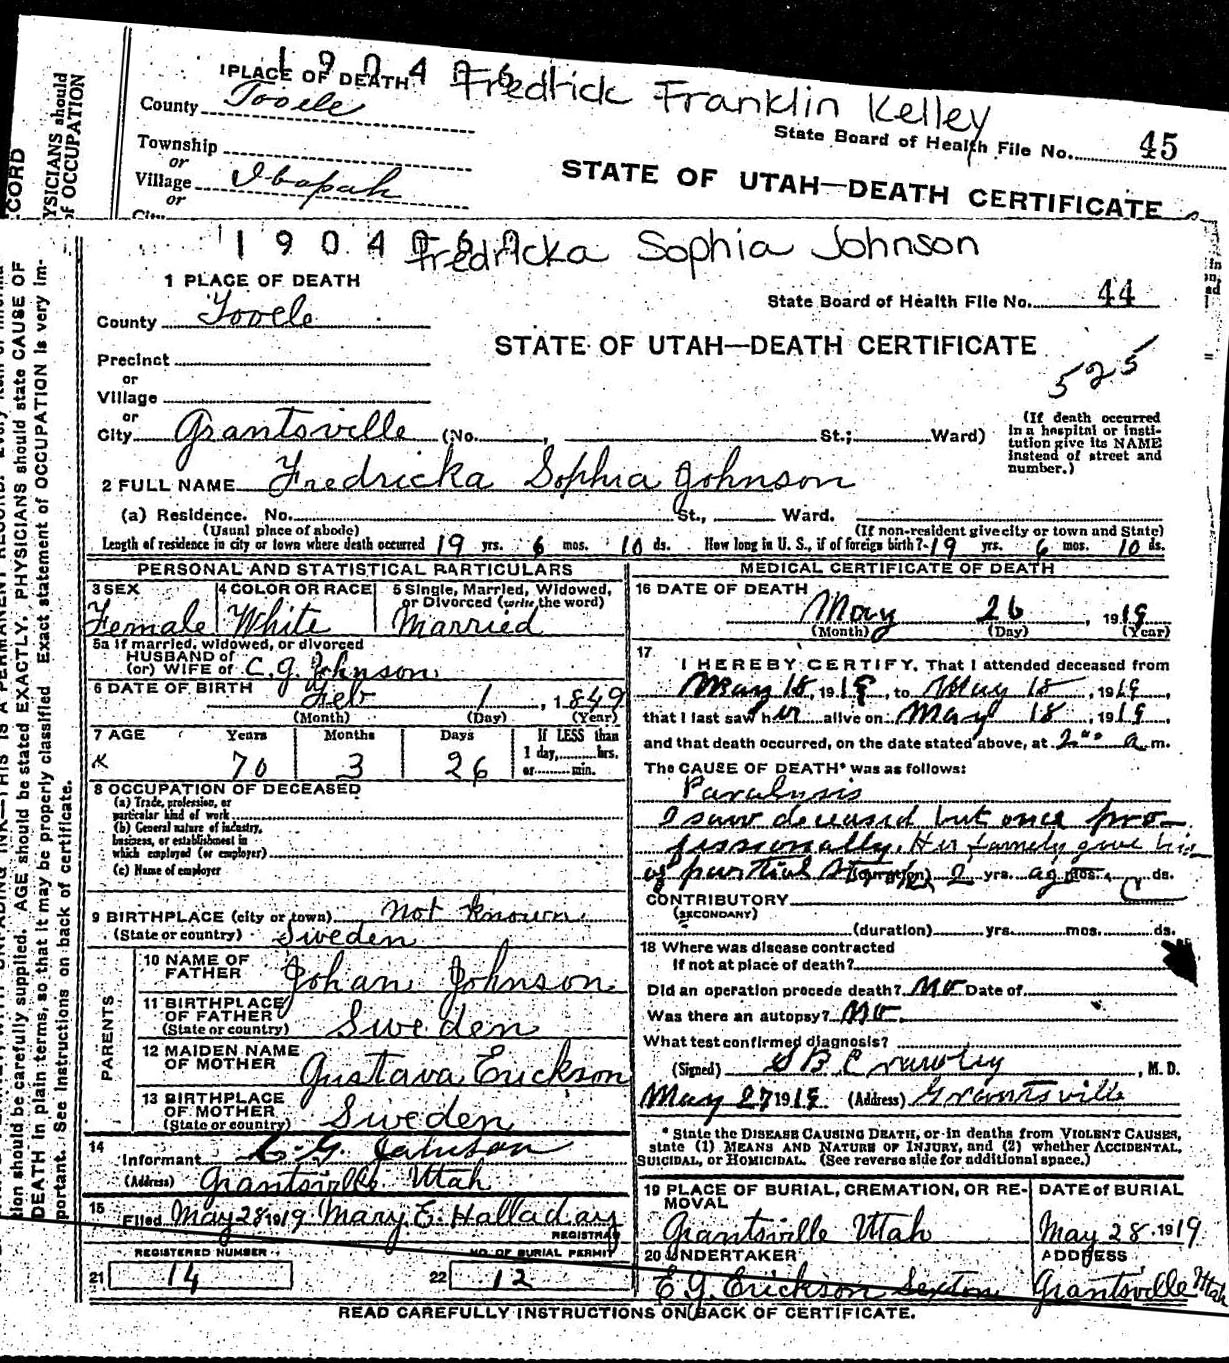 1 9 0 4
Fredrick Franklin Kelley
1 PLACE OF DEATH
County Tooele
State Board of Health File No. 45
Township
or
Village Ibapah
or
STATE OF UTAH—DEATH CERTIFICATE
CORD
YSICIANS should
of OCCUPATION
1 9 0 4
Fredricka Sophia Johnson
1 PLACE OF DEATH
State Board of Health File No. 44
County Tooele
STATE OF UTAH—DEATH CERTIFICATE
525
Precinct
or
Village
or
City Grantsville (No. , St.; Ward)
(If death occurred
in a hospital or insti-
tution give its NAME
instead of street and
number.)
2 FULL NAME Fredricka Sophia Johnson
(a) Residence. No. St., Ward.
(Usual place of abode) (If non-resident give city or town and State)
Length of residence in city or town where death occurred 19 yrs. 6 mos. 10 ds. How long in U. S., if of foreign birth? 19 yrs. 6 mos. 10 ds.
PERSONAL AND STATISTICAL PARTICULARS
3 SEX 4 COLOR OR RACE 5 Single, Married, Widowed,
or Divorced (write the word)
Female White Married
5a If married, widowed, or divorced
HUSBAND of
(or) WIFE of C. G. Johnson
6 DATE OF BIRTH Feb 1, 1849
(Month) (Day) (Year)
7 AGE Years Months Days If LESS than
1 day, hrs.
or min.
70 3 26
8 OCCUPATION OF DECEASED
(a) Trade, profession, or
particular kind of work
(b) General nature of industry,
business, or establishment in
which employed (or employer)
(c) Name of employer
9 BIRTHPLACE (city or town) not known
(State or country) Sweden
PARENTS
10 NAME OF
FATHER Johan Johnson
11 BIRTHPLACE
OF FATHER
(State or country) Sweden
12 MAIDEN NAME
OF MOTHER Gustava Erickson
13 BIRTHPLACE
OF MOTHER
(State or country) Sweden
14
Informant C. G. Johnson
(Address) Grantsville Utah
15
Filed May 28 1919 Mary E. Halladay
REGISTRAR
REGISTERED NUMBER NO. OF BURIAL PERMIT
21 14 22 12
MEDICAL CERTIFICATE OF DEATH
16 DATE OF DEATH
May 26, 1919
(Month) (Day) (Year)
17
I HEREBY CERTIFY, That I attended deceased from
May 18, 1919, to May 18, 1919,
that I last saw her alive on May 18, 1919,
and that death occurred, on the date stated above, at 2 a m.
The CAUSE OF DEATH* was as follows:
Paralysis
I saw deceased but once pro-
fessionally. Her family gave
of partial (duration) 2 yrs. ago mos. ds.
CONTRIBUTORY
(SECONDARY)
(duration) yrs. mos. ds.
18 Where was disease contracted
If not at place of death?
Did an operation precede death? No Date of
Was there an autopsy? No
What test confirmed diagnosis?
(Signed) , M. D.
May 27 1919 (Address) Grantsville
* State the DISEASE CAUSING DEATH, or in deaths from VIOLENT CAUSES,
state (1) MEANS AND NATURE OF INJURY, and (2) whether ACCIDENTAL,
SUICIDAL, or HOMICIDAL. (See reverse side for additional space.)
19 PLACE OF BURIAL, CREMATION, OR RE-
MOVAL DATE of BURIAL
Grantsville Utah May 28 1919
20 UNDERTAKER ADDRESS
E G. Erickson Sexton Grantsville Utah
READ CAREFULLY INSTRUCTIONS ON BACK OF CERTIFICATE.
tion should be carefully supplied. AGE should be stated EXACTLY. PHYSICIANS should state CAUSE OF
DEATH in plain terms, so that it may be properly classified. Exact statement of OCCUPATION is very im-
portant. See instructions on back of certificate.